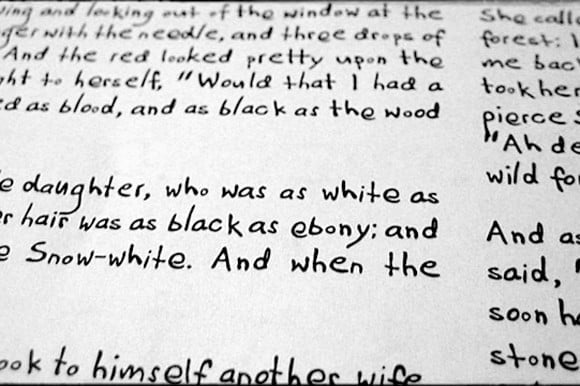 and looking out of the window at the
with the needle, and three drops of
And the red looked pretty upon the
to herself, "Would that I had a
as blood, and as black as the wood
daughter, who was as white as
hair was as black as ebony; and
Snow-white. And when the
to himself another wife
She
forest:
me
took her
pierce
"Ah
wild
And as
said, "
soon
stone